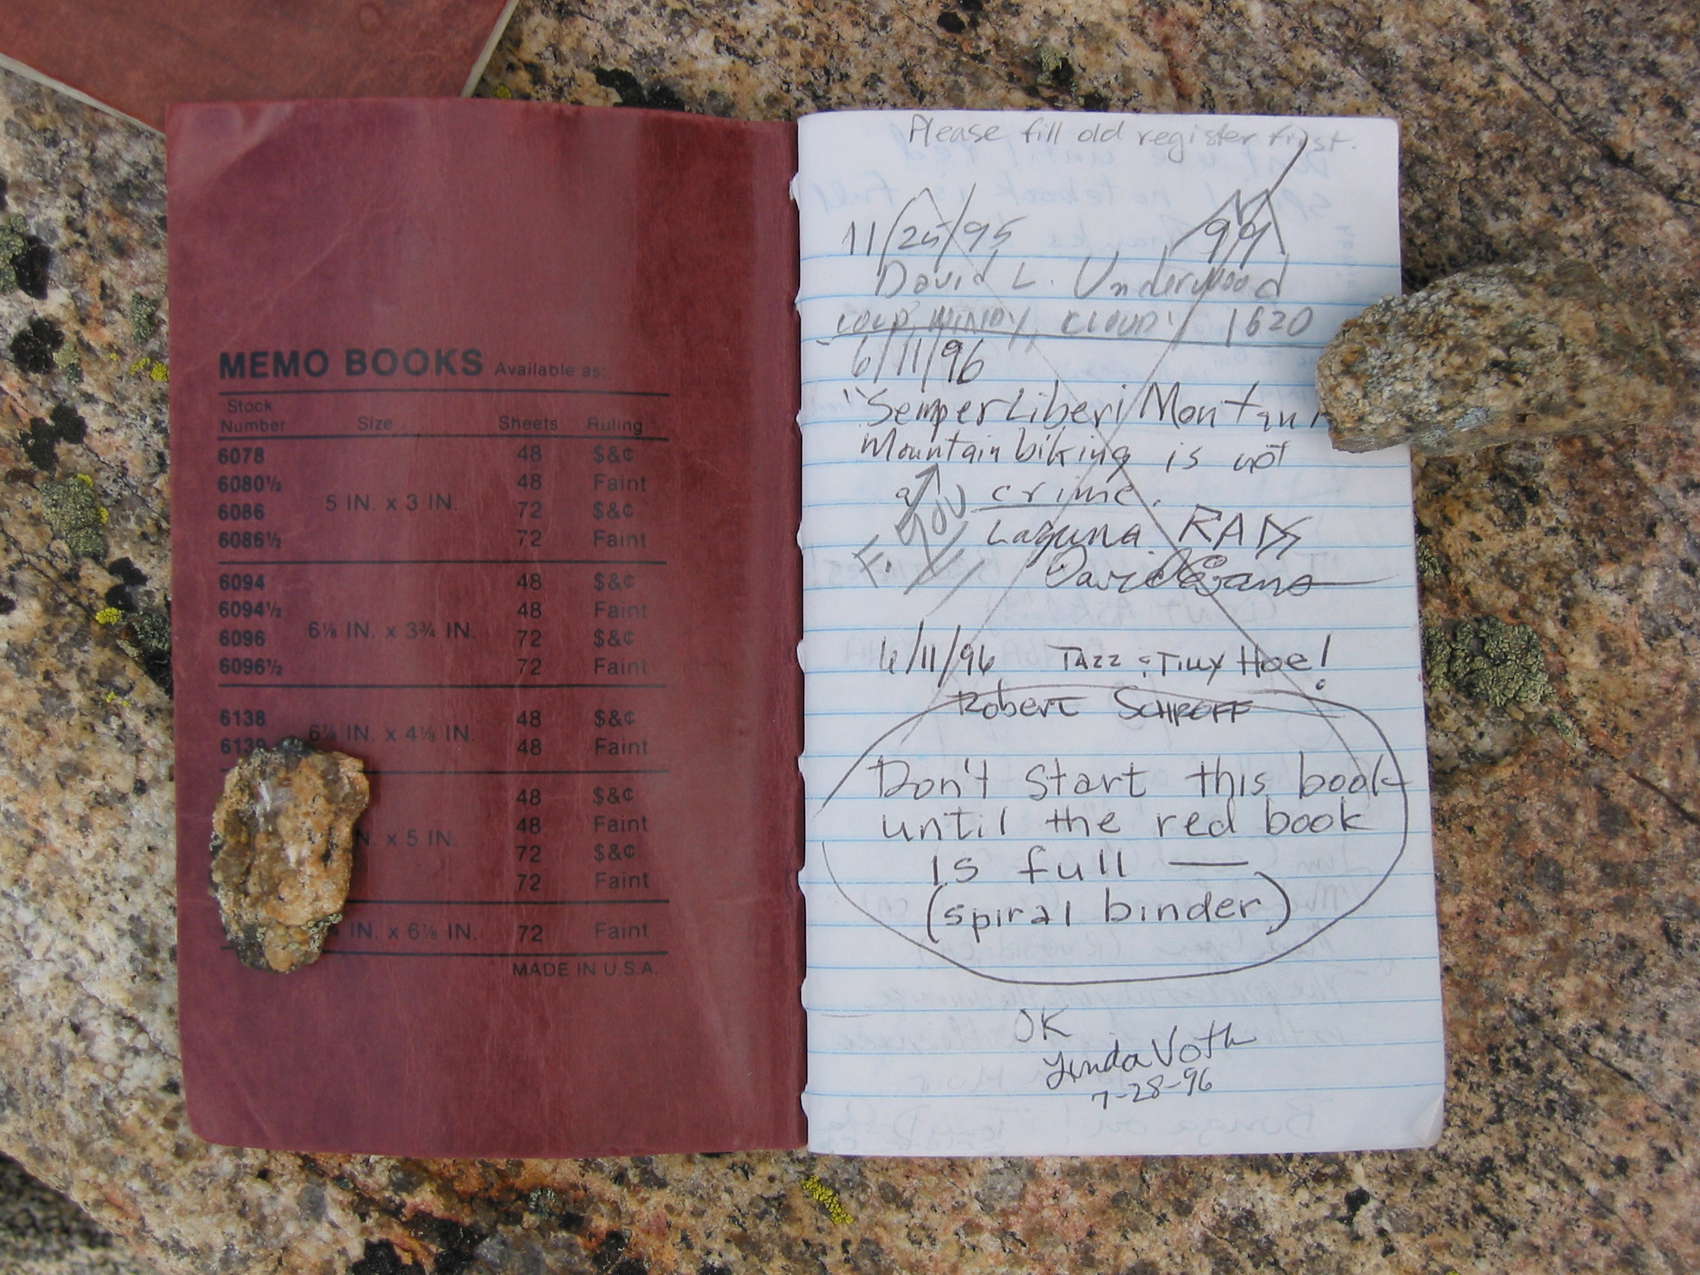 MEMO BOOKS Available as:
Stock Number Size Sheets Ruling
6078 48 $&¢
6080½ 48 Faint
5 IN. x 3 IN.
6086 72 $&¢
6086½ 72 Faint
6094 48 $&¢
6094½ 48 Faint
6⅛ IN. x 3¾ IN.
6096 72 $&¢
6096½ 72 Faint
6138 48 $&¢
IN. x 4⅛ IN.
6139 48 Faint
48 $&¢
48 Faint
IN. x 5 IN.
72 $&¢
72 Faint
IN. x 6⅛ IN. 72 Faint
MADE IN U.S.A.
Please fill old register first.
11/25/95 99
David L. Underwood
COLD, WINDY, CLOUDY 1620
6/11/96
"Semper Liberi Montani
Mountain biking is not
a crime.
F. YOU
Laguna RADS
6/11/96 TAZZ & TILLY HOE!
Robert SCHROFF
Don't start this book
until the red book
is full —
(spiral binder)
OK
Linda Voth
7-28-96